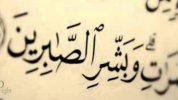 مَرَٰتِ ۗ وَبَشِّرِ ٱلصَّٰبِرِينَ